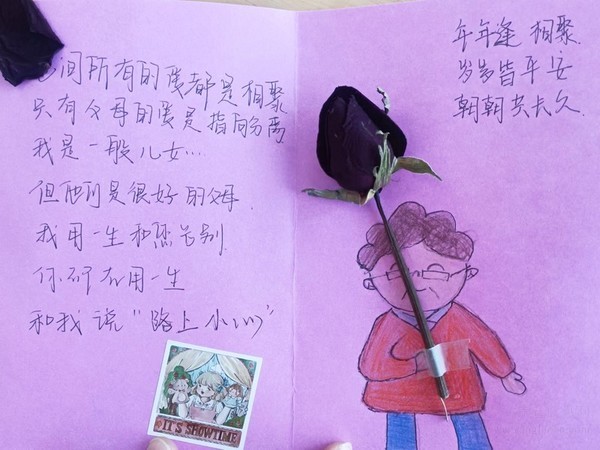 间所有的爱都是相聚
只有父母的爱是指向分离
我是一般儿女…
但他们是很好的父母
我用一生和您告别
你们在用一生
和我说“路上小心”
IT'S SHOWTIME
年年逢相聚
岁岁皆平安
朝朝共长久